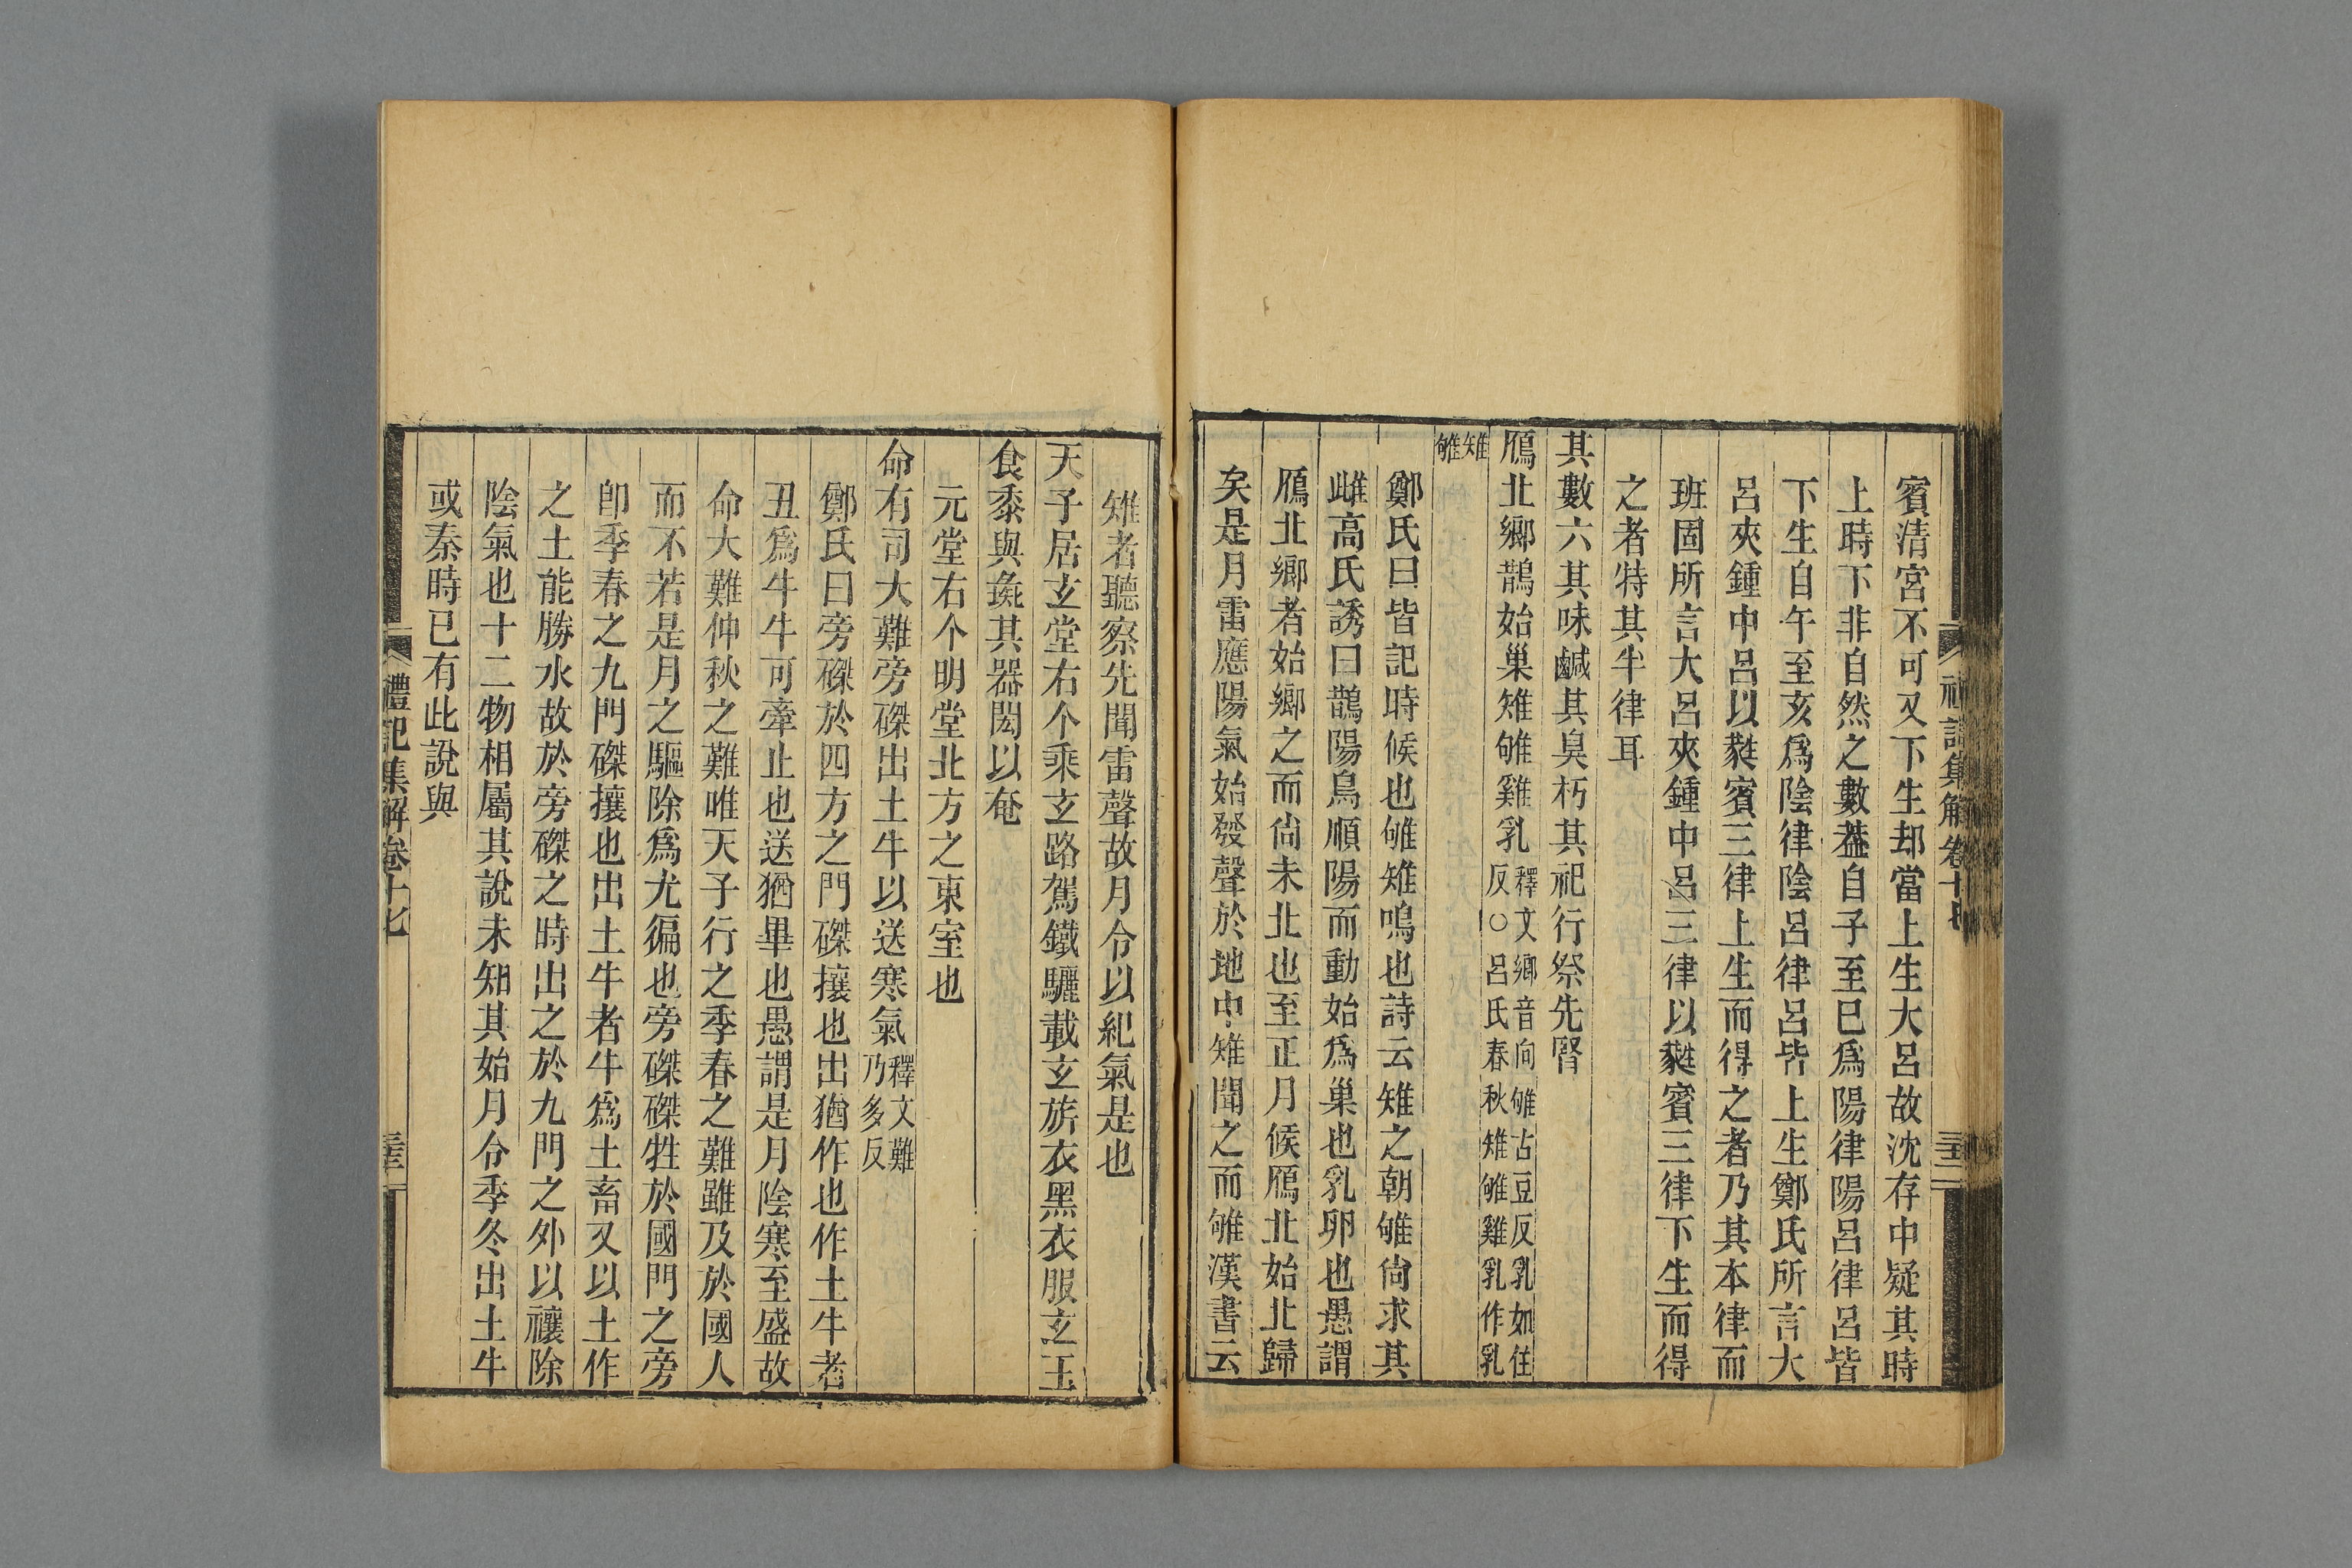 賓清宮不可又下生却當上生大呂故沈存中疑其時
上時下非自然之數葢自子至巳爲陽律陽呂律呂皆
下生自午至亥爲陰律陰呂律呂皆上生鄭氏所言大
呂夾鍾中呂以蕤賓三律上生而得之者乃其本律而
班固所言大呂夾鍾中呂三律以蕤賓三律下生而得
之者特其半律耳
其數六其味鹹其臭朽其祀行祭先腎
鴈北鄉鵲始巢雉雊雞乳釋文鄉音向雊古豆反乳如住
反○呂氏春秋雉雊雞乳作乳
雉雊
鄭氏曰皆記時候也雊雉鳴也詩云雉之朝雊尙求其
雌高氏誘曰鵲陽鳥順陽而動始爲巢也乳卵也愚謂
鴈北鄉者始鄉之而尙未北也至正月候鴈北始北歸
矣是月雷應陽氣始發聲於地中雉聞之而雊漢書云
雉者聽察先聞雷聲故月令以紀氣是也
天子居玄堂右个乘玄路駕鐵驪載玄旂衣黑衣服玄玉
食黍與彘其器閎以奄
元堂右个明堂北方之東室也
命有司大難旁磔出土牛以送寒氣釋文難
乃多反
鄭氏曰旁磔於四方之門磔攘也出猶作也作土牛者
丑爲牛牛可牽止也送猶畢也愚謂是月陰寒至盛故
命大難仲秋之難唯天子行之季春之難雖及於國人
而不若是月之驅除爲尤徧也旁磔磔牲於國門之旁
卽季春之九門磔攘也出土牛者牛爲土畜又以土作
之土能勝水故於旁磔之時出之於九門之外以禳除
陰氣也十二物相屬其說未知其始月令季冬出土牛
或秦時已有此說與
禮記集解卷十七